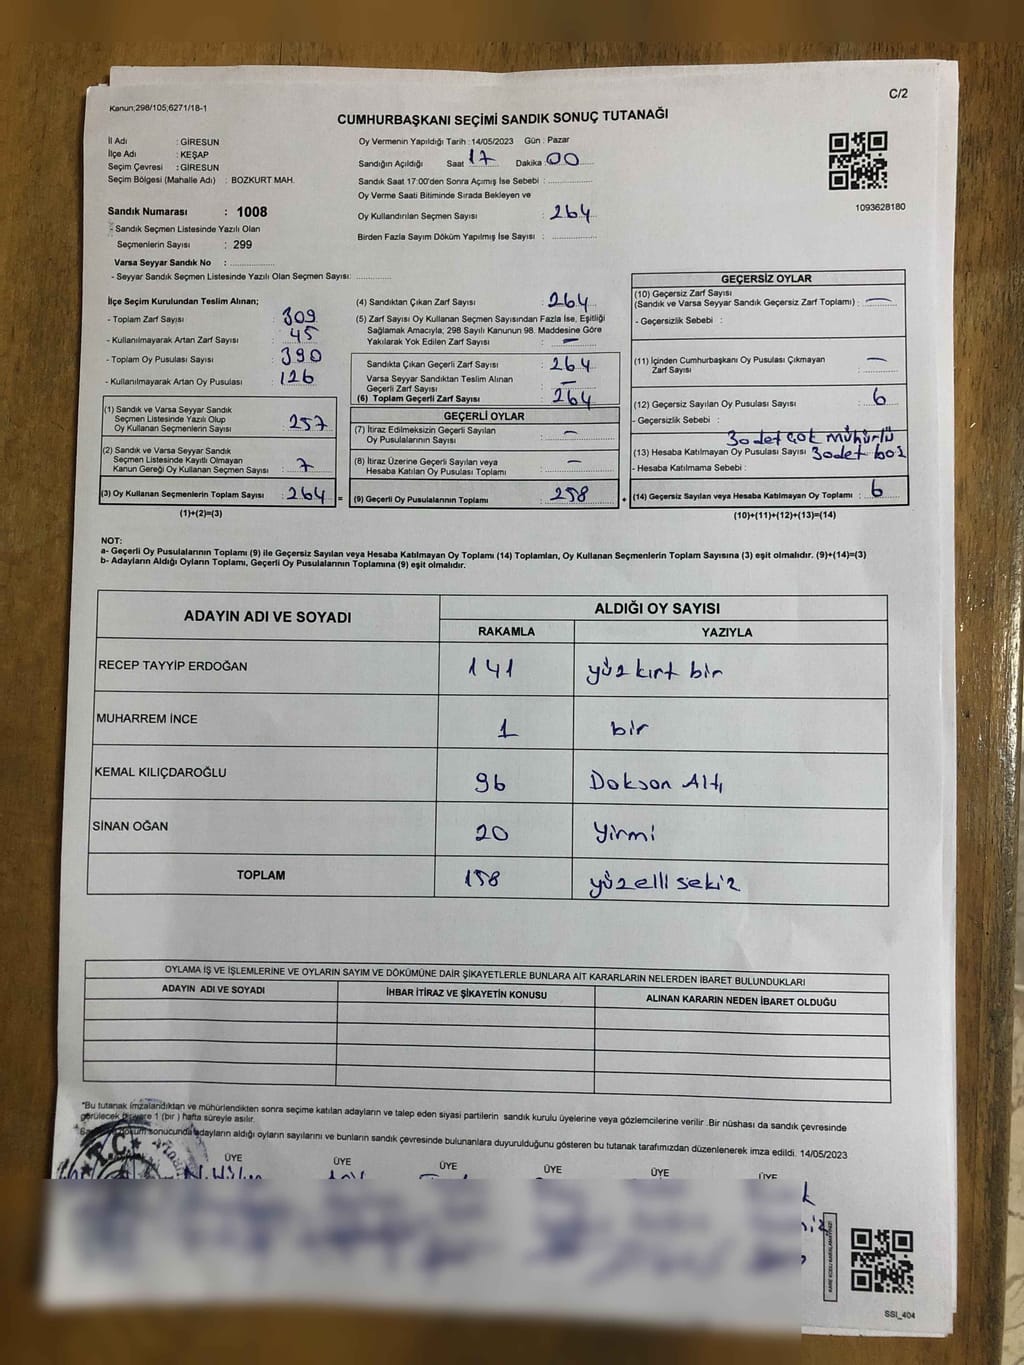 Kanun;298/105,6271/18-1
C/2
CUMHURBAŞKANI SEÇİMİ SANDIK SONUÇ TUTANAĞI
İl Adı : GİRESUN
İlçe Adı : KEŞAP
Seçim Çevresi : GİRESUN
Seçim Bölgesi (Mahalle Adı) : BOZKURT MAH.
Sandık Numarası : 1008
- Sandık Seçmen Listesinde Yazılı Olan
Seçmenlerin Sayısı : 299
Varsa Seyyar Sandık No :
- Seyyar Sandık Seçmen Listesinde Yazılı Olan Seçmen Sayısı:
Oy Vermenin Yapıldığı Tarih : 14/05/2023 Gün : Pazar
Sandığın Açıldığı Saat 17 Dakika 00
Sandık Saat 17:00'den Sonra Açımış İse Sebebi :
Oy Verme Saati Bitiminde Sırada Bekleyen ve
Oy Kullandırılan Seçmen Sayısı : 264
Birden Fazla Sayım Döküm Yapılmış İse Sayısı :
1093628180
İlçe Seçim Kurulundan Teslim Alınan;
- Toplam Zarf Sayısı : 309
- Kullanılmayarak Artan Zarf Sayısı : 45
- Toplam Oy Pusulası Sayısı : 390
- Kullanılmayarak Artan Oy Pusulası : 126
(1) Sandık ve Varsa Seyyar Sandık
Seçmen Listesinde Yazılı Olup
Oy Kullanan Seçmenlerin Sayısı : 257
(2) Sandık ve Varsa Seyyar Sandık
Seçmen Listesinde Kayıtlı Olmayan
Kanun Gereği Oy Kullanan Seçmen Sayısı : 7
(3) Oy Kullanan Seçmenlerin Toplam Sayısı : 264 =
(1)+(2)=(3)
(4) Sandıktan Çıkan Zarf Sayısı : 264
(5) Zarf Sayısı Oy Kullanan Seçmen Sayısından Fazla İse, Eşitliği
Sağlamak Amacıyla; 298 Sayılı Kanunun 98. Maddesine Göre
Yakılarak Yok Edilen Zarf Sayısı : —
Sandıkta Çıkan Geçerli Zarf Sayısı : 264
Varsa Seyyar Sandıktan Teslim Alınan
Geçerli Zarf Sayısı : —
(6) Toplam Geçerli Zarf Sayısı : 264
GEÇERLİ OYLAR
(7) İtiraz Edilmeksizin Geçerli Sayılan
Oy Pusulalarının Sayısı : —
(8) İtiraz Üzerine Geçerli Sayılan veya
Hesaba Katılan Oy Pusulası Toplamı : —
(9) Geçerli Oy Pusulalarının Toplamı : 258 +
GEÇERSİZ OYLAR
(10) Geçersiz Zarf Sayısı
(Sandık ve Varsa Seyyar Sandık Geçersiz Zarf Toplamı) : —
- Geçersizlik Sebebi :
(11) İçinden Cumhurbaşkanı Oy Pusulası Çıkmayan
Zarf Sayısı : —
(12) Geçersiz Sayılan Oy Pusulası Sayısı : 6
- Geçersizlik Sebebi :
3 adet çok mühürlü
(13) Hesaba Katılmayan Oy Pusulası Sayısı 3 adet boş
- Hesaba Katılmama Sebebi :
(14) Geçersiz Sayılan veya Hesaba Katılmayan Oy Toplamı : 6
(10)+(11)+(12)+(13)=(14)
NOT:
a- Geçerli Oy Pusulalarının Toplamı (9) ile Geçersiz Sayılan veya Hesaba Katılmayan Oy Toplamı (14) Toplamları, Oy Kullanan Seçmenlerin Toplam Sayısına (3) eşit olmalıdır. (9)+(14)=(3)
b- Adayların Aldığı Oyların Toplamı, Geçerli Oy Pusulalarının Toplamına (9) eşit olmalıdır.
ADAYIN ADI VE SOYADI ALDIĞI OY SAYISI
RAKAMLA YAZIYLA
RECEP TAYYİP ERDOĞAN 141 yüz kırt bir
MUHARREM İNCE 1 bir
KEMAL KILIÇDAROĞLU 96 Doksan Altı
SİNAN OĞAN 20 Yirmi
TOPLAM 158 yüzelli sekiz
OYLAMA İŞ VE İŞLEMLERİNE VE OYLARIN SAYIM VE DÖKÜMÜNE DAİR ŞİKAYETLERLE BUNLARA AİT KARARLARIN NELERDEN İBARET BULUNDUKLARI
ADAYIN ADI VE SOYADI İHBAR İTİRAZ VE ŞİKAYETİN KONUSU ALINAN KARARIN NEDEN İBARET OLDUĞU
"Bu tutanak imzalandıktan ve mühürlendikten sonra seçime katılan adayların ve talep eden siyasi partilerin sandık kurulu üyelerine veya gözlemcilerine verilir .Bir nüshası da sandık çevresinde
görülecek bir yere 1 (bir ) hafta süreyle asılır.
döküm sonucunda adayların aldığı oyların sayılarını ve bunların sandık çevresinde bulunanlara duyurulduğunu gösteren bu tutanak tarafımızdan düzenlenerek imza edildi. 14/05/2023
T.C.
ÜYE ÜYE ÜYE ÜYE ÜYE ÜYE
SSI_404